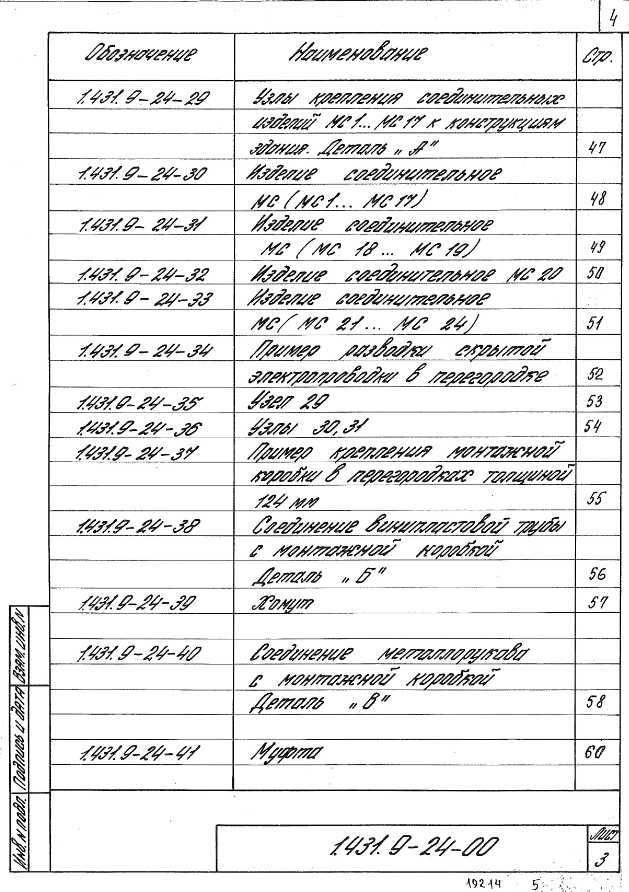 4
Обозначение Наименование Стр.
1.431.9-24-29 Узлы крепления соединительных
изделий МС1...МС17 к конструкциям
здания. Деталь „А" 47
1.431.9-24-30 Изделие соединительное
МС (МС1... МС17) 48
1.431.9-24-31 Изделие соединительное
МС (МС 18 ... МС 19) 49
1.431.9-24-32 Изделие соединительное МС 20 50
1.431.9-24-33 Изделие соединительное
МС (МС 21 ... МС 24) 51
1.431.9-24-34 Пример разводки скрытой
электропроводки в перегородке 52
1.431.9-24-35 Узел 29 53
1.431.9-24-36 Узлы 30,31 54
1.431.9-24-37 Пример крепления монтажной
коробки в перегородках толщиной
124 мм 55
1.431.9-24-38 Соединение винипластовой трубы
с монтажной коробкой
Деталь „Б" 56
1.431.9-24-39 Хомут 57
1.431.9-24-40 Соединение металлорукава
с монтажной коробкой
Деталь „В" 58
1.431.9-24-41 Муфта 60
Инв.№ подл. Подпись и дата Взам.инв.№
1.431.9-24-00
Лист
3
19214 5